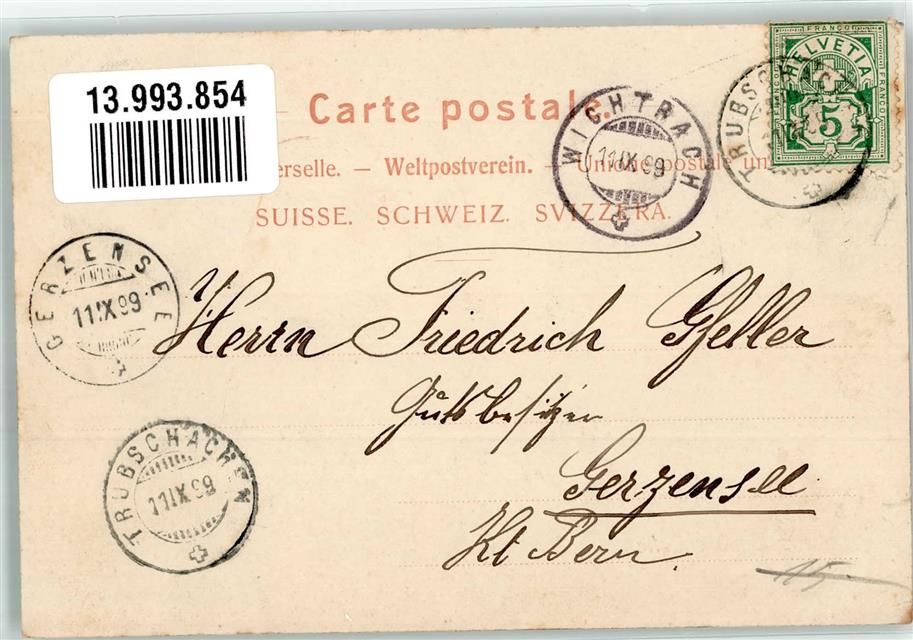 13.993.854
FRANCO
HELVETIA
FRANCO
5
Carte postale.
erselle. — Weltpostverein. — Unione postale un
SUISSE. SCHWEIZ. SVIZZERA.
WICHTRACH
11.IX.99
TRUBSCH
GERZENSEE
11.IX.99
Herrn Friedrich Gfeller
Gutsbesitzer
Gerzensee
Kt Bern.
TRUBSCHACHEN
11.IX.99